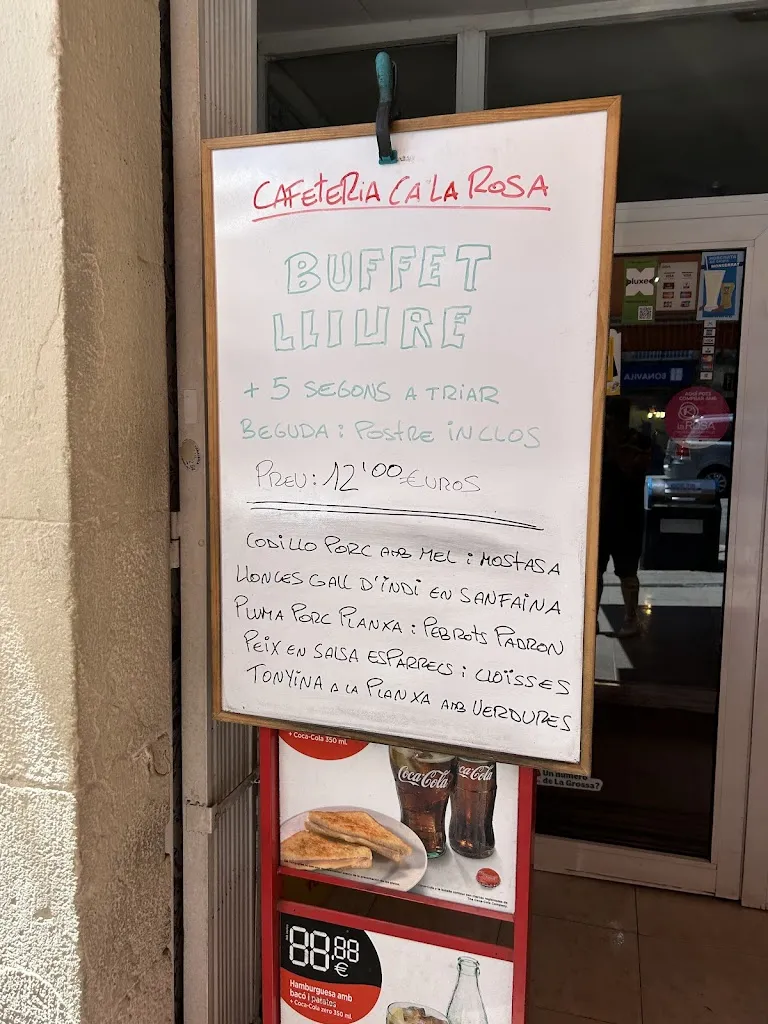 CAFETERIA CA LA ROSA
BUFFET
LLIURE
+ 5 SEGONS A TRIAR
BEGUDA i POSTRE INCLOS
PREU: 12'00 EUROS
CODILLO PORC AMB MEL i MOSTASA
LLONCES GALL D'INDI EN SANFAINA
PLUMA PORC PLANXA i PEBROTS PADRON
PEIX EN SALSA ESPARRECS i CLOÏSSES
TONYINA A LA PLANXA AMB VERDURES
+ Coca-Cola 350 ml.
Coca-Cola
Coca-Cola
88,88
€
Hamburguesa amb
bacó i patates
+ Coca-Cola zero 350 ml.
pluxee
BONAVILA
la ROSA
Un número
de La Grossa?